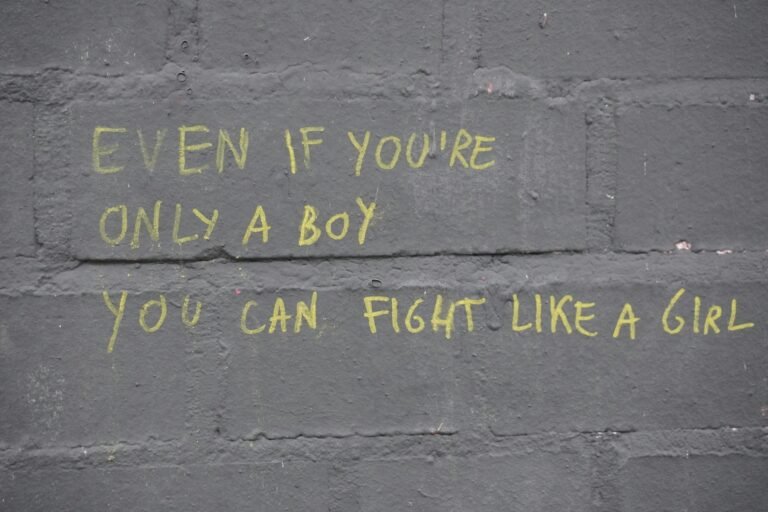 EVEN IF YOU'RE
ONLY A BOY
YOU CAN FIGHT LIKE A GIRL